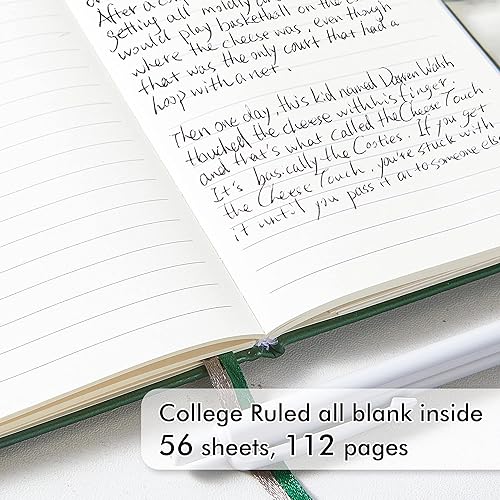 After a
getting all moldy an
would play basketball on the co
where the cheese was, even though
that was the only court that had a
hoop with a net.
Then one day, this kid named Darren Walsh
touched the cheese with his finger,
and that's what called the Cheese Touch.
It's basically the Cooties. If you get
the Cheese Touch, you're stuck with
it until you pass it on to someone else
College Ruled all blank inside
56 sheets, 112 pages